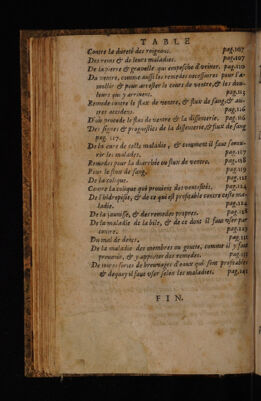 TABLE
Contre la dureté des roignons. pag.107
Des reins & de leurs maladies. pag.107
De la pierre & grauelle qui empesche d'vriner. pag.110
Du ventre, comme aussi les remedes necessaires pour l'a-
mollir & pour arrester le cours du ventre, & les dou-
leurs qui y arriuent. pag.113
Remede contre le flux de ventre, & flux de sang, & au-
tres accidens. pag.116
D'où procede le flux de ventre & la dissenterie. pag.116
Des signes & prognostics de la dissenterie, & flux de sang
pag. 117.
De la cure de ceste maladie, & comment il faut secou-
rir les malades. pag.117
Remedes pour la diarrhée ou flux de ventre. pag.118
Pour le flux de sang. pag.119
De la colique.
Contre la colique qui prouient des ventositez. pag.124
De l'hidropisie, & de ce qui est profitable contre ceste ma-
ladie.
De la jaunisse, & des remedes propres. pag.128
De la maladie de la bile, & de ce dont il faut vser par
contre.
Du mal de dents.
De la maladie des membres ou goutte, comme il y faut
preuenir, & y apporter des remedes.
De toutes sortes de breuuages d'eaux qui sont profitables
& dequoy il faut vser selon les maladies. pag.141
FIN.